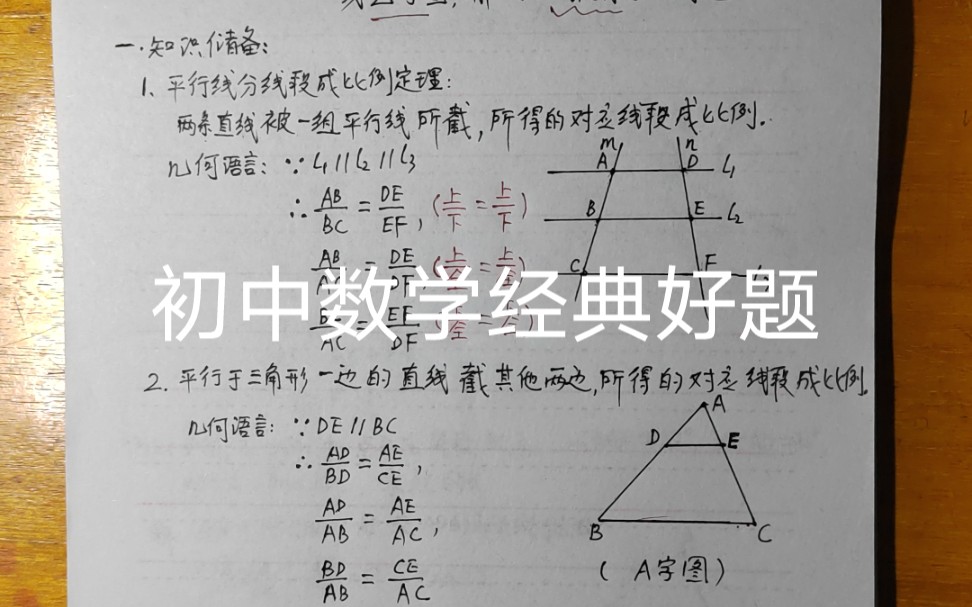 一.知识储备:
1、平行线分线段成比例定理:
两条直线被一组平行线所截,所得的对应线段成比例.
几何语言: ∵ l₁∥l₂∥l₃
∴ AB/BC = DE/EF, (上/下 = 上/下)
AB = DE (上/全 = 上/全)
AC = EF/DF
m n
A D l₁
B E l₂
C F
初中数学经典好题
2. 平行于三角形一边的直线截其他两边,所得的对应线段成比例.
几何语言: ∵ DE∥BC
∴ AD/BD = AE/CE,
AD/AB = AE/AC,
BD/AB = CE/AC
A
D E
B C
( A字图)